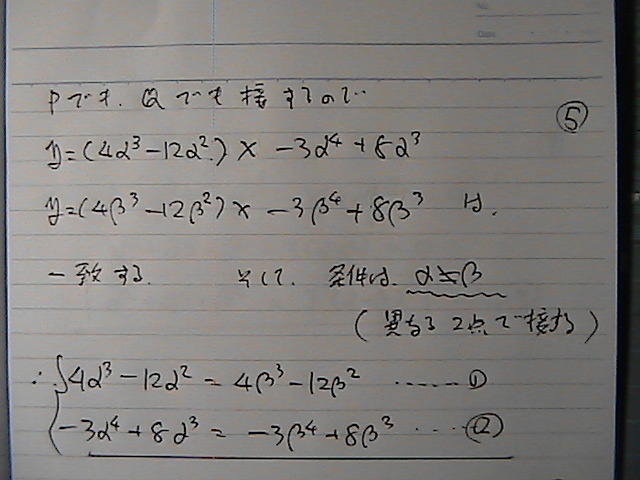 Pでも、Qでも接するので
⑤
y=(4α³-12α²)x -3α⁴+8α³
y=(4β³-12β²)x -3β⁴+8β³ は、
一致する. そして、条件は、α≠β
(異なる2点で接する)
∴ { 4α³-12α² = 4β³-12β² ……①
-3α⁴+8α³ = -3β⁴+8β³ ……②